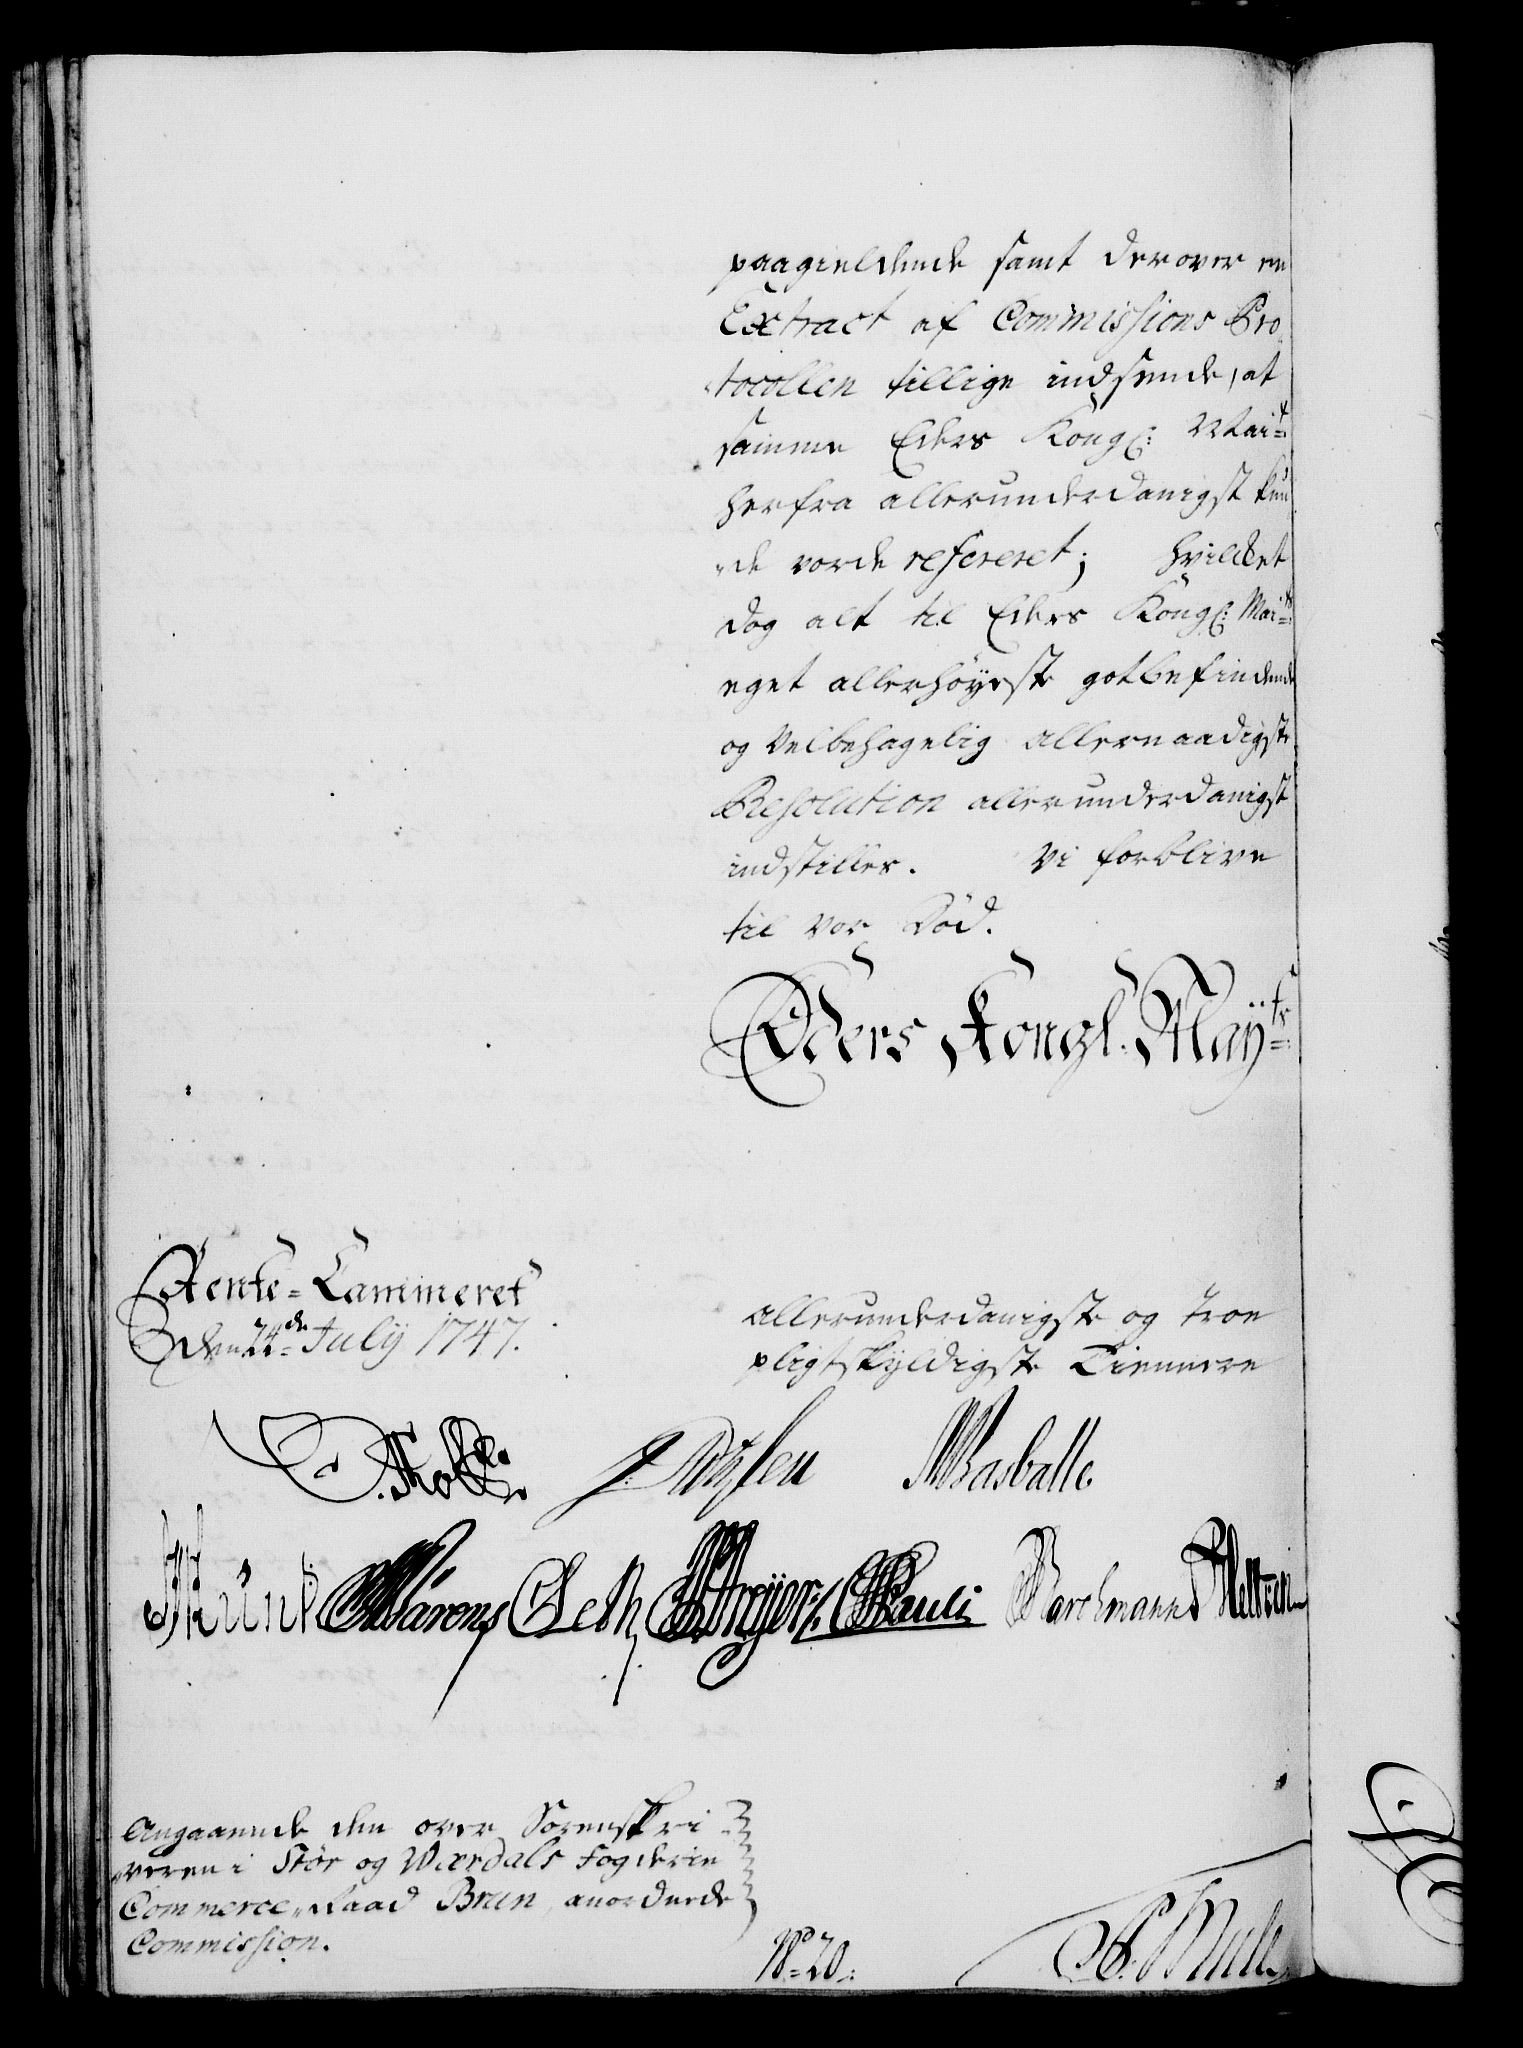 paagieldende samt derover en
Extract af Commissions Pro
tocollen tillige indsende, at
samme Eders Kongl: Mait:
herfra allerunderdanigst kun
de vorde refereret; hvilcket
dog alt til Eders Kongl: Maits:
eget allerhøyeste gotbefindende
og Velbehagelig allernaadigste
Resolution allerunderdanigst
indstilles. Vi forblive
til vor Död.
Eders Kongl. Mayts:
Rente-Cammeret
den 24de July 1747.
allerunderdanigste og troe
pligtskyldigste Tiennere
Masballe
Pauli
Angaaende den over Sorenskri
veren i Stör og Værdals Fogderie
Commerce-Raad Brun, anordnede
Commission.
No 20.